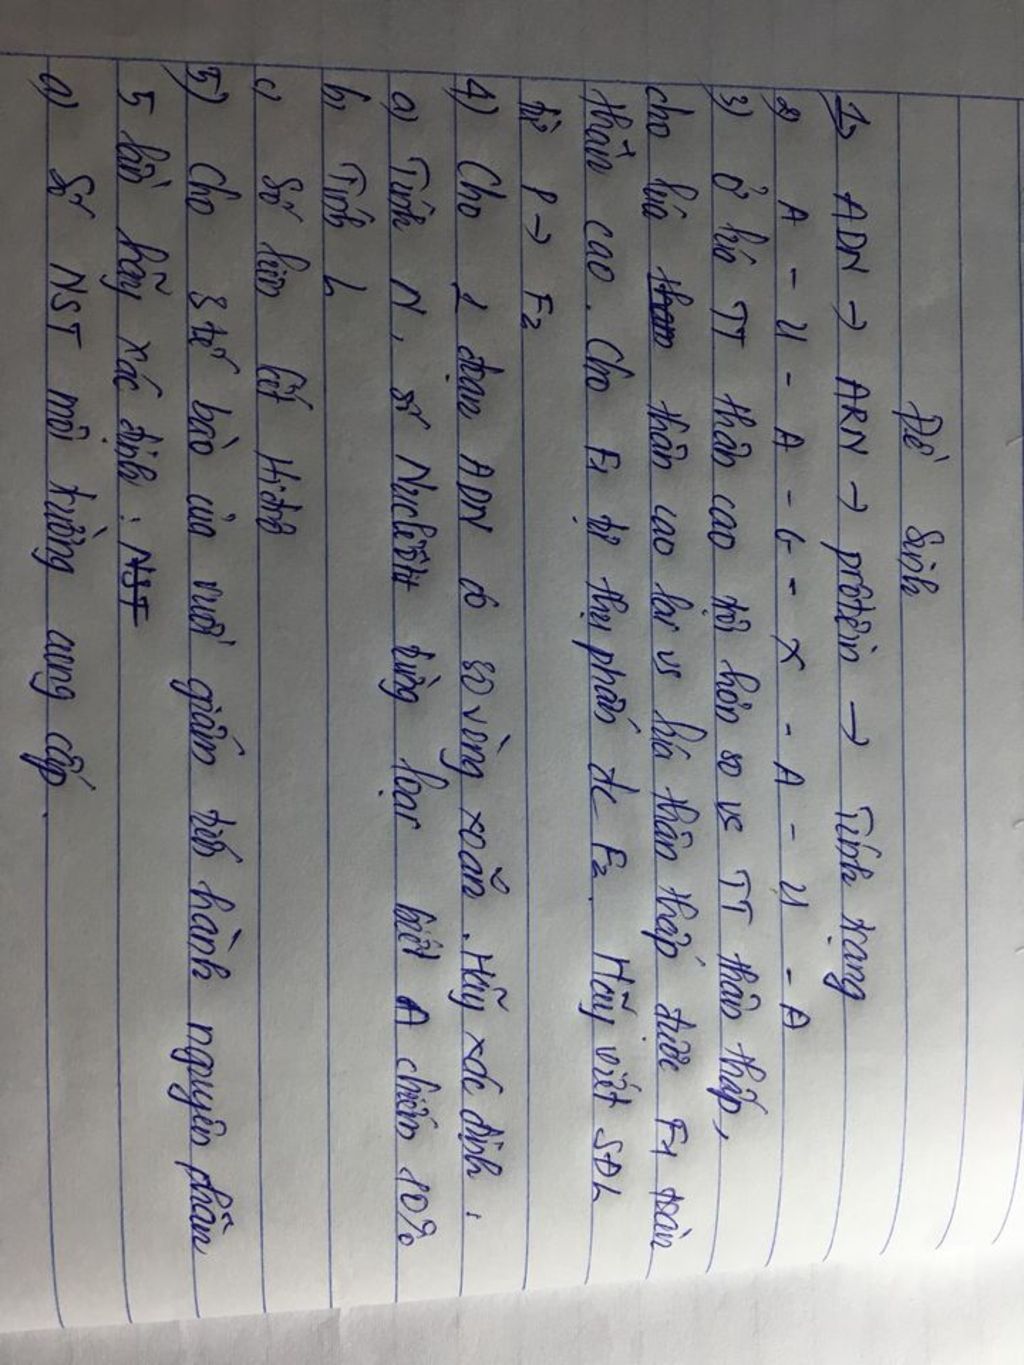 Đề Sinh
1) ADN → ARN → prôtêin → Tính trạng
2) A - U - A - G - X - A - U - A
3) Ở lúa TT thân cao trội hơn so vs TT thân thấp,
cho lúa thân cao lai vs lúa thân thấp được F1 toàn
thân cao. Cho F1 tự thụ phấn đc F2. Hãy viết SĐL
từ P → F2
4) Cho 1 đoạn ADN có 30 vòng xoắn. Hãy xác định:
a) Tính N, số Nuclêôtit từng loại biết A chiếm 10%
b, Tính L
c, Số liên kết Hiđrô
5) Cho 3 tế bào của ruồi giấm tiến hành nguyên phân
5 lần hãy xác định:
a) Số NST môi trường cung cấp.